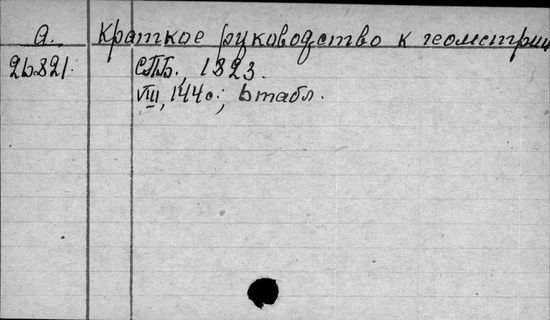 а. Краткое руководство к геометрии
2b821. СПБ., 1823.
VIII, 144 с.; 6 табл.